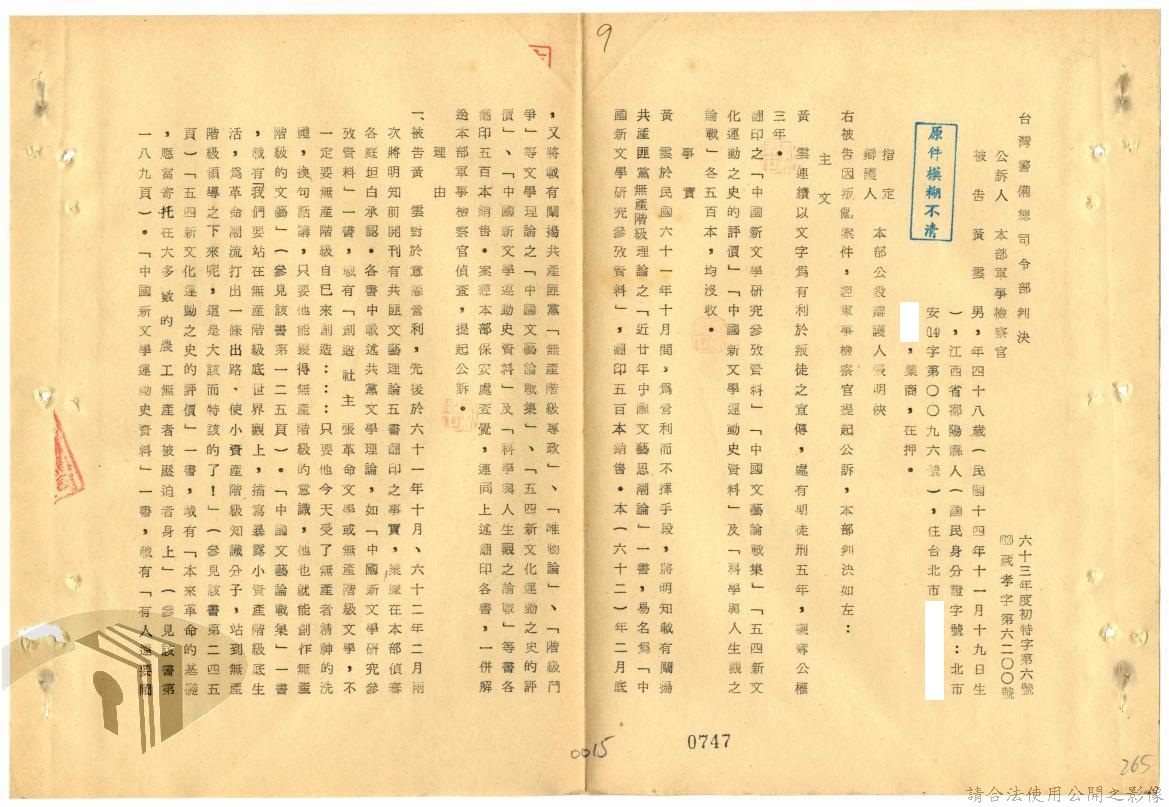 9
台灣警備總司令部判決
六十三年度初特字第六號
公訴人　本部軍事檢察官
諫孝字第六二〇〇號
被　告　黃　雲　男，年四十八歲（民國十四年十一月十九日生
），江西省鄱陽縣人（國民身分證字號：北市
安(14)字第〇〇九六號），住台北市
，業商，在押。
原件模糊不清
指定
辯護人　本部公設辯護人張明俠
右被告因叛亂案件，經軍事檢察官提起公訴，本部判決如左：
主　文
黃　雲連續以文字為有利於叛徒之宣傳，處有期徒刑五年，褫奪公權
三年。
翻印之「中國新文學研究參攷資料」「中國文藝論戰集」「五四新文
化運動之史的評價」「中國新文學運動史資料」及「科學與人生觀之
論戰」各五百本，均沒收。
事　實
黃　雲於民國六十一年十月間，為營利而不擇手段，將明知載有闡揚
共產匪黨無產階級理論之「近廿年中國文藝思潮論」一書，易名為「中
國新文學研究參攷資料」，翻印五百本銷售。本（六十二）年二月底
，又將載有闡揚共產匪黨「無產階級專政」、「唯物論」、「階級鬥
爭」等文學理論之「中國文藝論戰集」、「五四新文化運動之史的評
價」、「中國新文學運動史資料」及「科學與人生觀之論戰」等書各
翻印五百本銷售。案經本部保安處查覺，連同上述翻印各書，一併解
送本部軍事檢察官偵查，提起公訴。
理　由
一、被告黃　雲對於意圖營利，先後於六十一年十月、六十二年二月兩
次將明知前開刊有共匪文藝理論五書翻印之事實，業據在本部偵審
各庭坦白承認。各書中載述共黨文學理論，如「中國新文學研究參
攷資料」一書，載有「創造社主張革命文學或無產階級文學，不
一定要無產階級自已來創造：：：只要他今天受了無產者精神的洗
禮，換句話講，只要他能獲得無產階級的意識，他也就能創作無產
階級的文藝」（參見該書第一二五頁）。「中國文藝論戰集」一書
，載有「我們要站在無產階級底世界觀上，描寫暴露小資產階級底生
活，為革命潮流打出一條出路，使小資產階級知識分子，站到無產
階級領導之下來呢，這是大該而特該的了！」（參見該書第二四五
頁）「五四新文化運動之史的評價」一書，載有「本來革命的基礎
，應當寄托在大多數的農工無產者被壓迫者身上」（參見該書第
一八九頁）。「中國新文學運動史資料」一書，載有「有人還要鬧
0015
0747
265
請合法使用公開之影像